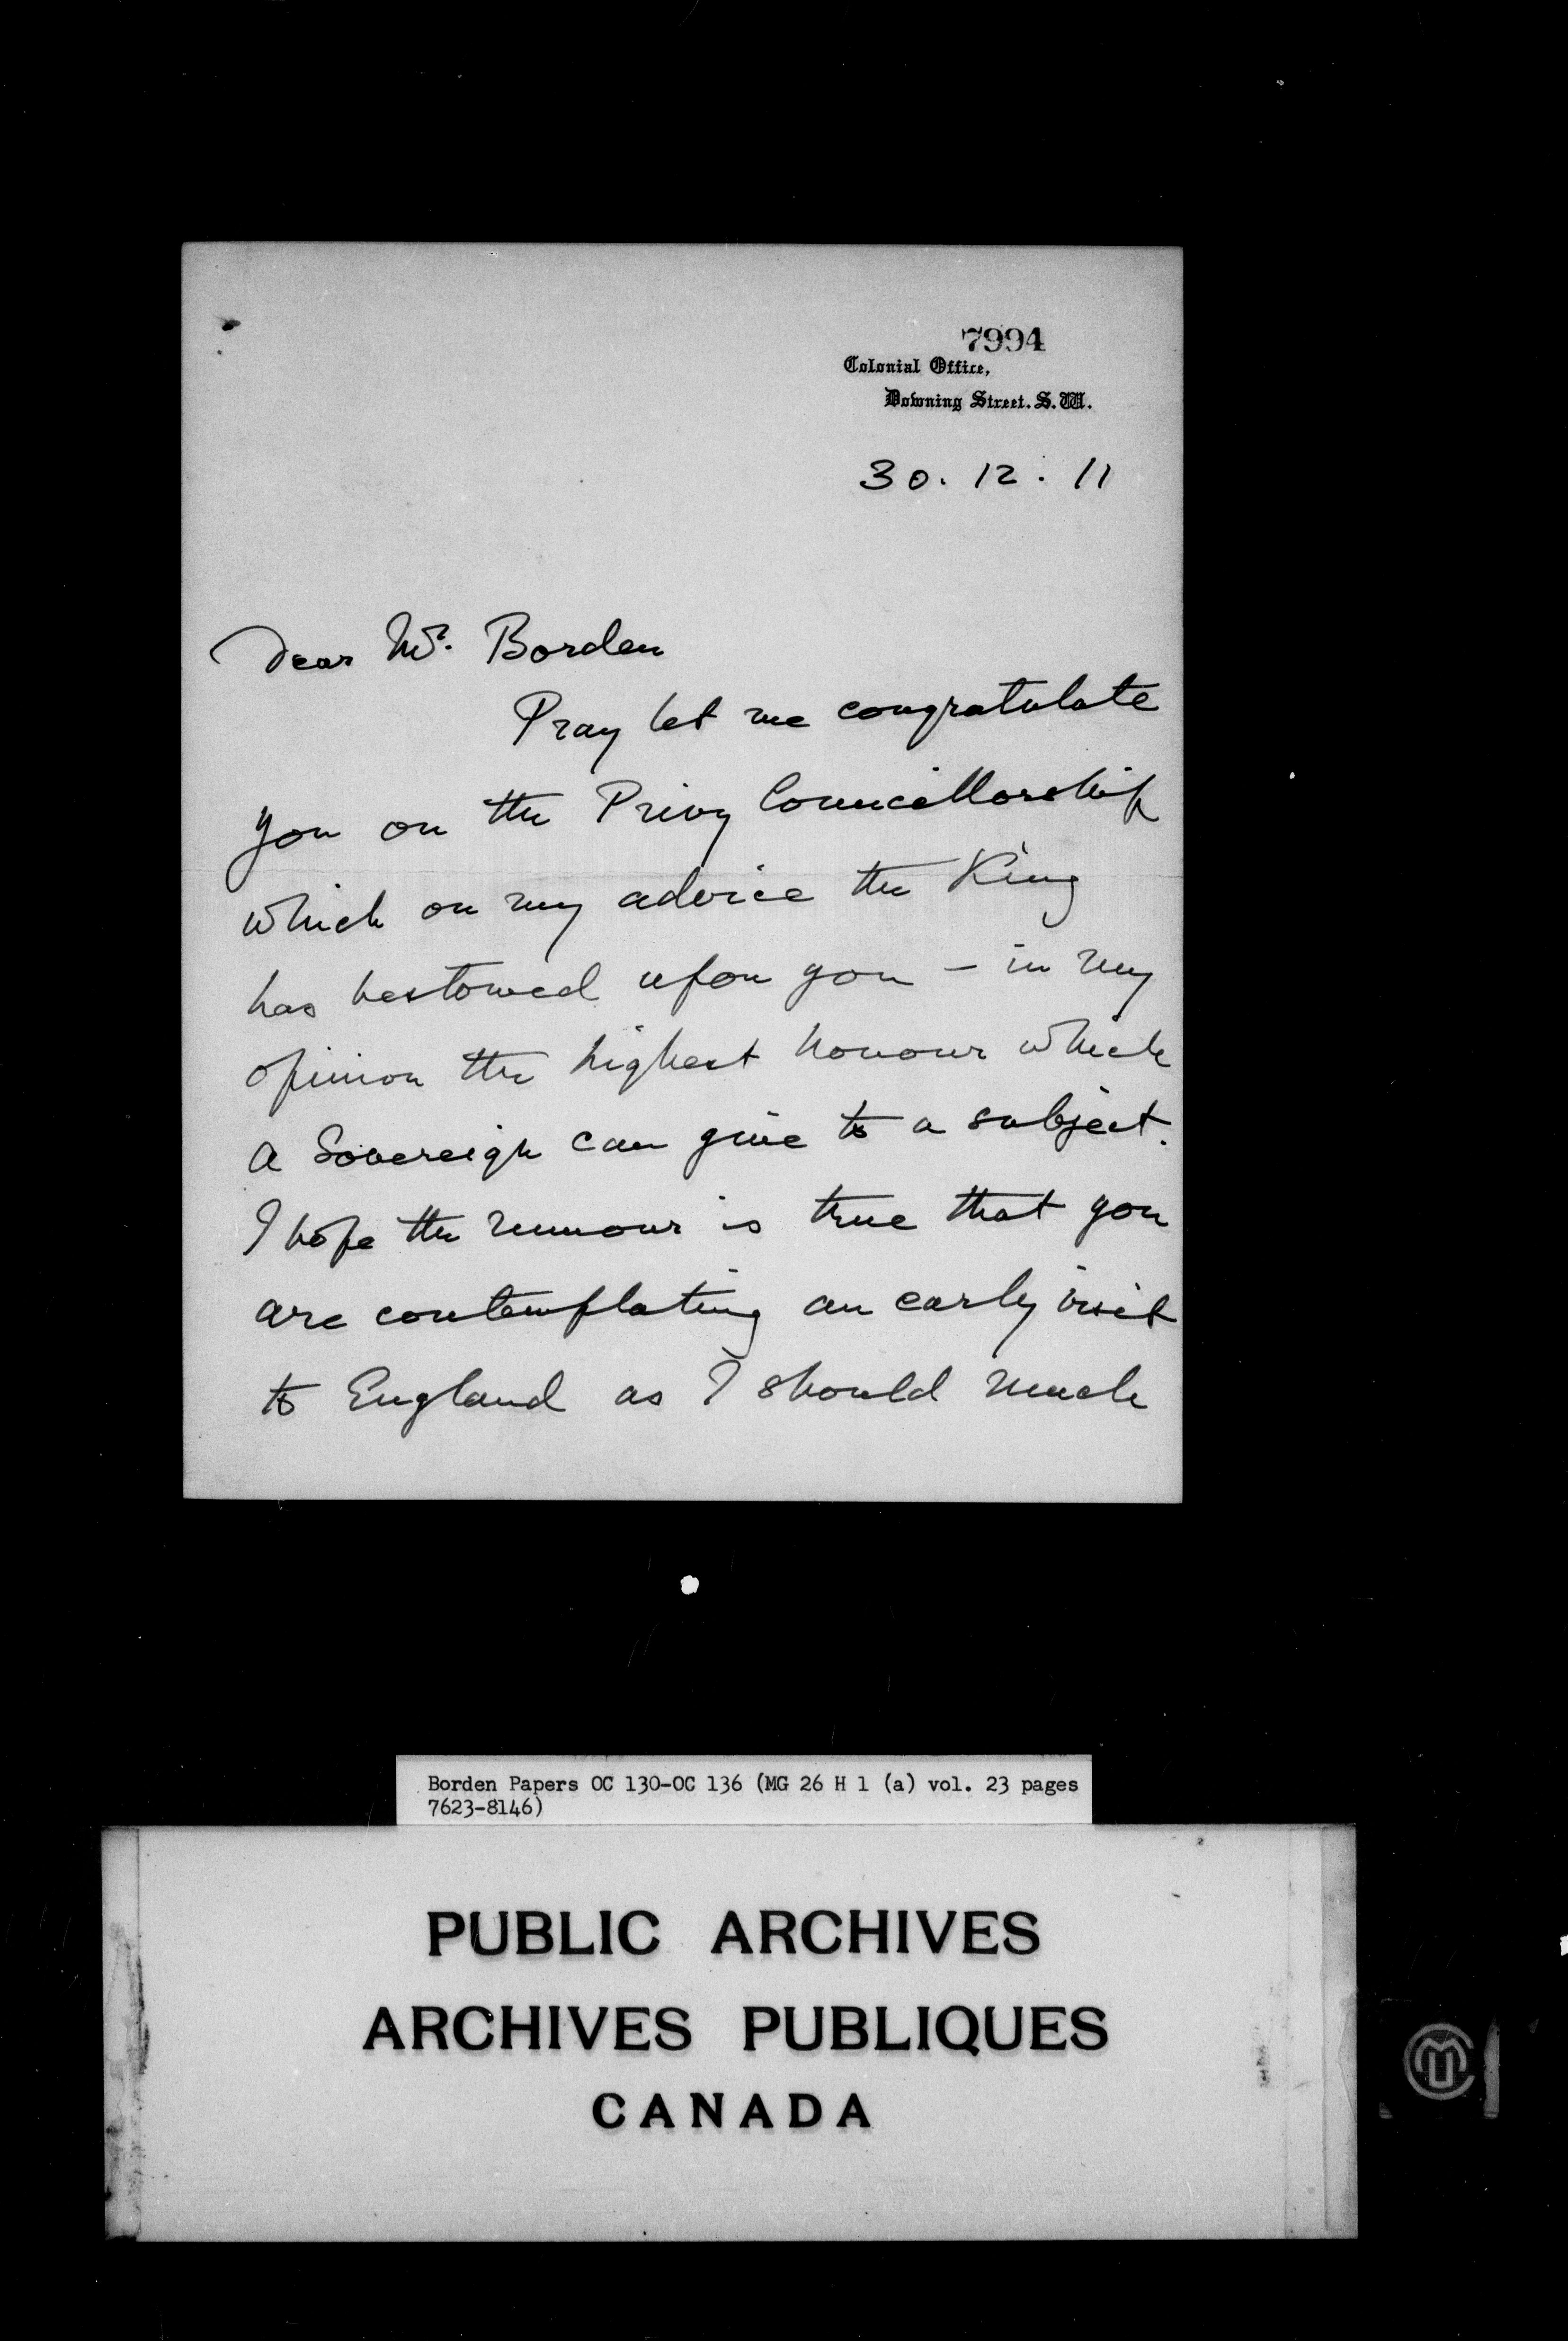 7994
Colonial Office,
Downing Street. S.W.
30. 12. 11
Dear Mr. Borden
Pray let me congratulate
you on the Privy Councillorship
which on my advice the King
has bestowed upon you – in my
opinion the highest honour which
a Sovereign can give to a subject.
I hope the rumour is true that you
are contemplating an early visit
to England as I should much
Borden Papers OC 130-OC 136 (MG 26 H 1 (a) vol. 23 pages
7623-8146)
PUBLIC ARCHIVES
ARCHIVES PUBLIQUES
CANADA